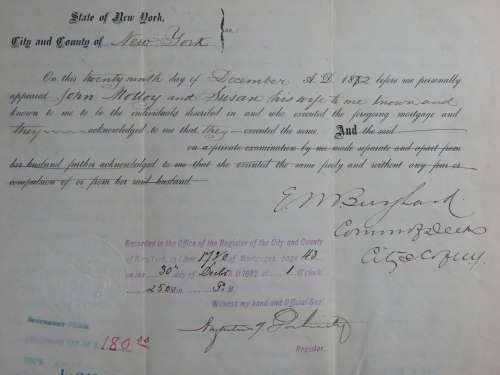 State of New York,
City and County of New York } ss.:
On this twenty ninth day of December A.D. 1882 before me personally
appeared John Molloy and Susan his wife to me known and
known to me to be the individuals described in and who executed the foregoing mortgage and
they acknowledged to me that they executed the same. And the said
on a private examination by me made separate and apart from
her husband further acknowledged to me that she executed the same freely and without any fear or
compulsion of or from her said husband
Commr of Deeds
City & Co
Recorded in the Office of the Register of the City and County
of New York, in Liber of Mortgages, page 43
on the 30" day of Decbr A.D 1882 at 1 O'clock
P.M
Witness my hand and Official Seal
Register.
180 00